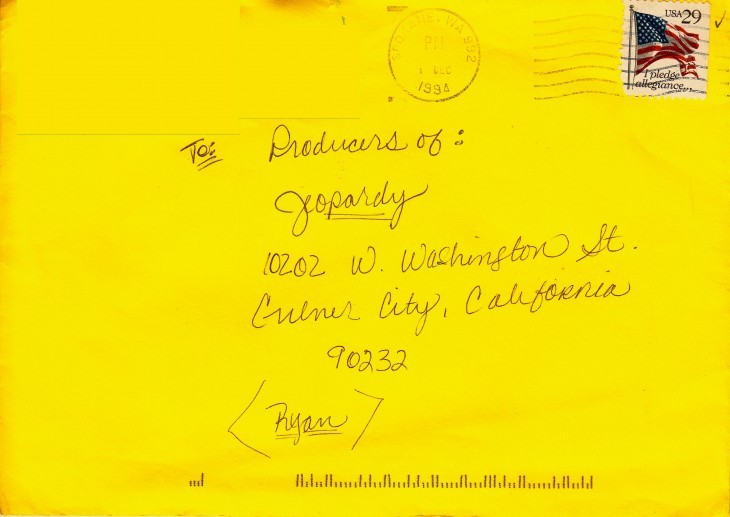 SPOKANE, WA 992
PM
1 DEC
1994
USA 29
I pledge
allegiance...
To:
Producers of:
Jeopardy
10202 W. Washington St.
Culver City, California
90232
Ryan